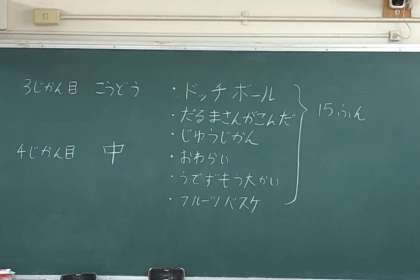 3じかん目 こうどう
4じかん目 中
・ドッチボール
・だるまさんがこんだ
・じゅうじかん
・おわらい
・うでずもう大かい
・フルーツバスケ
15ふん